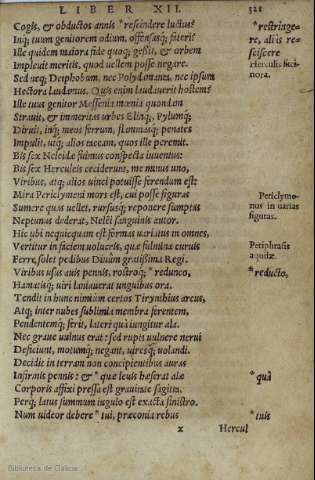 LIBER XII. 321
Cogis, et obductos annis *rescindere luctus?
Inq; tuum genitorem odium, offensasq; fateri?
Ille quidem maiora fide quoq; gessit, et orbem
Impleuit meritis, quod uellem posse negare.
Sed neq; Deiphobum, nec Polydamanta, nec ipsum
Hectora laudamus. Quis enim laudauerit hostem?
Ille tuus genitor Messenia mœnia quondam
Strauit, et immeritas urbes Elinq;, Pylumq;
Diruit, inq; meos ferrum, flammasq; penates
Impulit. utq; alios taceam, quos ille peremit.
Bis sex Nelidæ fuimus conspecta iuuentus:
Bis sex Herculeis ceciderunt, me minus uno,
Viribus, atq; alios uinci potuisse ferendum est:
Mira Periclymeni mors est, cui posse figuras
Sumere quas uellet, rursusq; reponere sumptas
Neptunus dederat, Nelei sanguinis autor.
Hic ubi nequicquam est formas uariatus in omnes,
Vertitur in faciem uolucris, quæ fulmina curuis
Ferre solet pedibus Diuûm gratissima Regi.
Viribus usus auis pennis, rostroq; *redunco,
Hamatisq; uiri laniauerat unguibus ora.
Tendit in hunc nimium certos Tirynthius arcus,
Atq; inter nubes sublimia membra ferentem,
Pendentemq; ferit, lateri quà iungitur ala.
Nec graue uulnus erat: sed rupti uulnere nerui
Deficiunt, motumq; negant, uiresq; uolandi.
Decidit in terram non concipientibus auras
Infirmis pennis: et *quæ leuis hæserat alæ
Corporis affixi pressa est grauitate sagitta.
Perq; latus summum iugulo est exacta sinistro.
Num uideor debere *tui, præconia rebus
x Hercul
*restringere, alii reſcisſcere
Herculis facinora.
Periclymenus in uarias figuras.
Periphrasis aquilæ.
*reducto,
*quà
*tuis
Biblioteca de Galicia